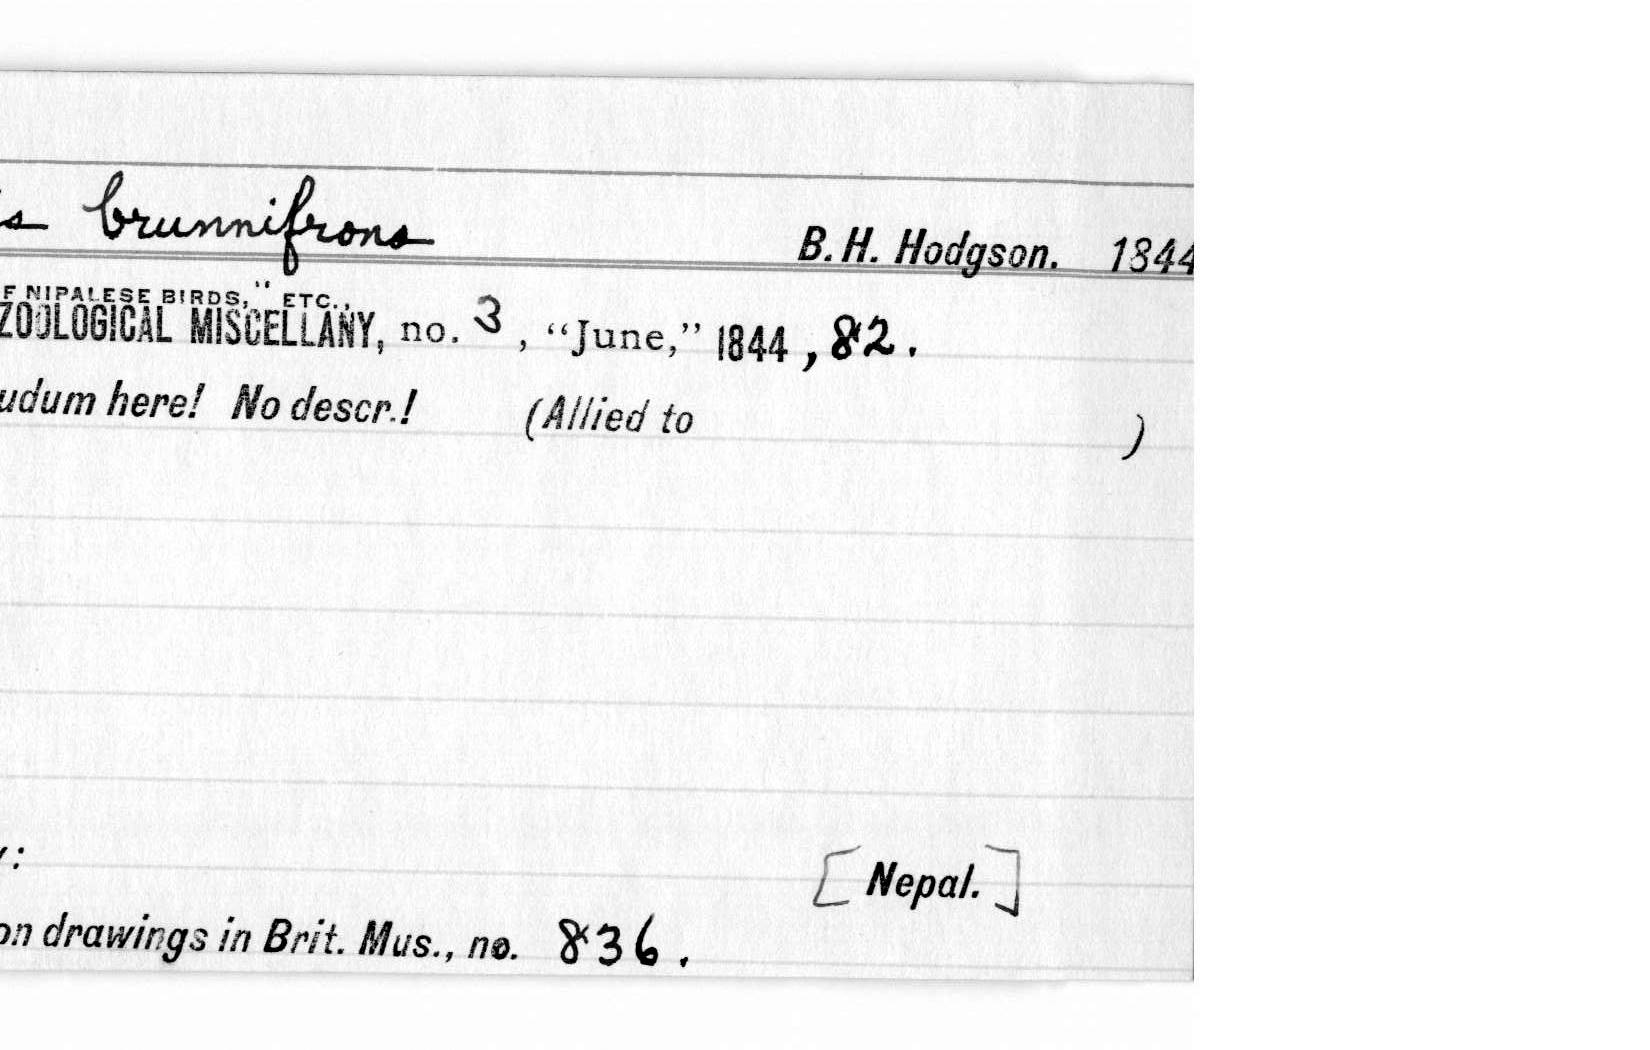 s brunnifrons B. H. Hodgson. 1844
F NIPALESE BIRDS," ETC.,
ZOOLOGICAL MISCELLANY, no. 3, "June," 1844, 82.
udum here! No descr.! (Allied to )
y: [Nepal.]
on drawings in Brit. Mus., no. 836.